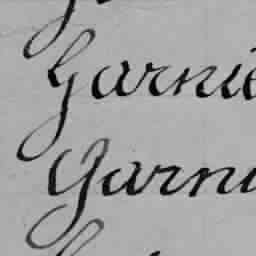 Garnie
Garni